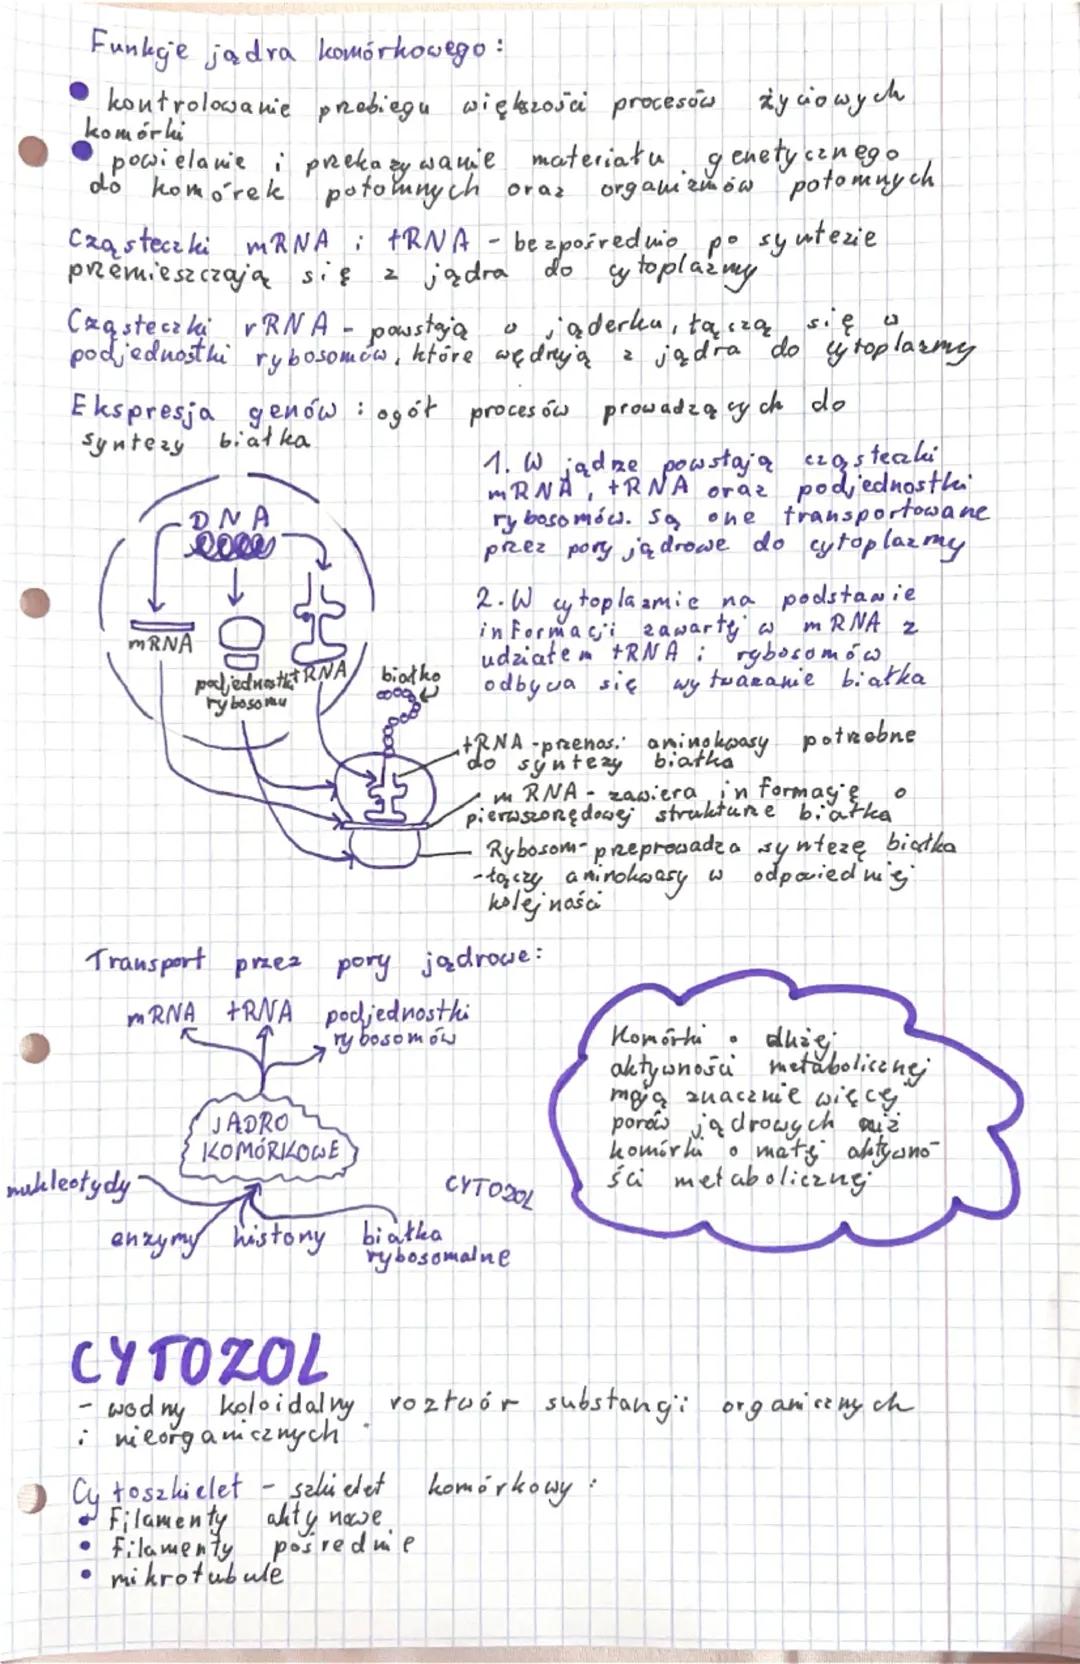 Funkcje jądra komórkowego:
• kontrolowanie przebiegu większości procesów życiowych
komórki
• powielanie i przekazywanie materiału genetycznego
do komórek potomnych oraz organizmów potomnych
Cząsteczki mRNA i tRNA - bezpośrednio po syntezie
przemieszczają się z jądra do cytoplazmy
Cząsteczki rRNA - powstają w jąderku, łączą się w
podjednostki rybosomów, które wędrują z jądra do cytoplazmy
Ekspresja genów : ogół procesów prowadzących do
syntezy białka
DNA
mRNA
podjednostki
rybosomu
tRNA
białko
1. W jądrze powstają cząsteczki
mRNA, tRNA oraz podjednostki
rybosomów. Są one transportowane
przez pory jądrowe do cytoplazmy
2. W cytoplazmie na podstawie
informacji zawartej w mRNA z
udziałem tRNA i rybosomów
odbywa się wytwarzanie białka
tRNA - przenosi aminokwasy potrzebne
do syntezy białka
mRNA - zawiera informację o
pierwszorzędowej strukturze białka
Rybosom - przeprowadza syntezę białka
- łączy aminokwasy w odpowiedniej
kolejności
Transport przez pory jądrowe:
mRNA tRNA podjednostki
rybosomów
JĄDRO
KOMÓRKOWE
nukleotydy
CYTOZOL
enzymy histony białka
rybosomalne
Komórki o dużej
aktywności metabolicznej
mają znacznie więcej
porów jądrowych niż
komórki o małej aktywno-
ści metabolicznej
CYTOZOL
- wodny koloidalny roztwór substancji organicznych
i nieorganicznych
Cytoszkielet - szkielet komórkowy:
• Filamenty aktynowe
• filamenty pośrednie
• mikrotubule